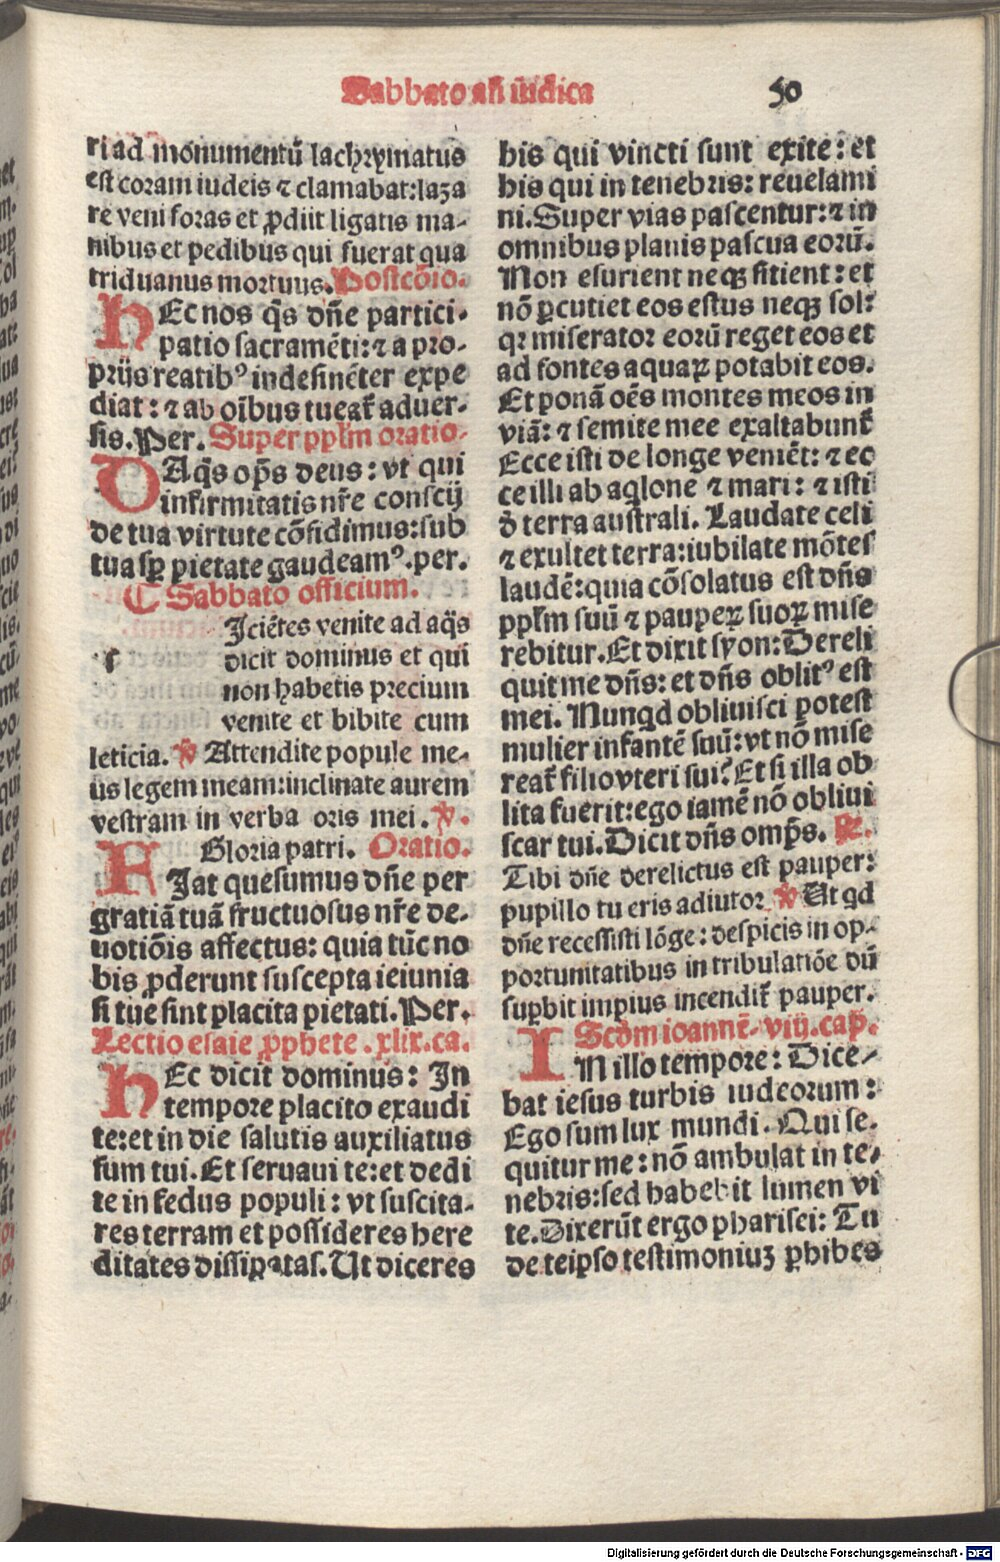 Sabbato añ iudica
50
ri ad monumentū lachrymatus
est coram iudeis ⁊ clamabat: laza
re veni foras et ꝓdiit ligatis ma-
nibus et pedibus qui fuerat qua
triduanus mortuus. Postcōio.
hEc nos q̄s dn̄e partici-
patio sacramēti: ⁊ a pro-
prijs reatibꝰ indesinēter expe
diat: ⁊ ab oībus tueat̄ aduer-
sis. Per. Super pplm oratio.
DA q̄s op̄s deus: vt qui
infirmitatis nr̄e conscij
de tua virtute cōfidimus: sub
tua sꝑ pietate gaudeamꝰ. per.
¶ Sabbato officium.
s Iciētes venite ad aq̄s
dicit dominus et qui
non habetis precium
venite et bibite cum
leticia. ℣ Attendite popule me-
us legem meam: inclinate aurem
vestram in verba oris mei. ℣.
Gloria patri. Oratio.
FIat quesumus dn̄e per
gratiā tuā fructuosus nr̄e de-
uotiōis affectus: quia tūc no
bis ꝓderunt suscepta ieiunia
si tue sint placita pietati. Per.
Lectio esaie ꝓphete. xlix. ca.
hEc dicit dominus: In
tempore placito exaudi
te: et in die salutis auxiliatus
sum tui. Et seruaui te: et dedi
te in fedus populi: vt suscita-
res terram et possideres here
ditates dissipatas. Ut diceres
his qui vincti sunt exite: et
his qui in tenebris: reuelami
ni. Super vias pascentur: ⁊ in
omnibus planis pascua eorū.
Non esurient neqꝫ sitient: et
nō ꝑcutiet eos estus neqꝫ sol:
qr miserator eorū reget eos et
ad fontes aquaꝝ potabit eos.
Et ponā oēs montes meos in
viā: ⁊ semite mee exaltabunt̄
Ecce isti de longe veniēt: ⁊ ec
ce illi ab aqlone ⁊ mari: ⁊ isti
d̄ terra australi. Laudate celi
⁊ exultet terra: iubilate mōtes
laudē: quia cōsolatus est dn̄s
pplm suū ⁊ pauperꝝ suoꝝ mise
rebitur. Et dixit syon: Dereli
quit me dn̄s: et dn̄s oblitꝰ est
mei. Nunqd obliuisci potest
mulier infantē suū: vt nō mise
reat̄ filio vteri sui? Et si illa ob
lita fuerit: ego tamē nō obliui
scar tui. Dicit dn̄s omp̄s. ℟.
Tibi dn̄e derelictus est pauper:
pupillo tu eris adiutor ℣ Ut qd
dn̄e recessisti lōge: despicis in op-
portunitatibus in tribulatiōe dū
suꝑbit impius incendit̄ pauper.
Scdm ioannē. viij. cap.
IN illo tempore: Dice-
bat iesus turbis iudeorum:
Ego sum lux mundi. Qui se-
quitur me: nō ambulat in te-
nebris: sed habebit lumen vi
te. Dixerūt ergo pharisei: Tu
de teipso testimoniuꝫ ꝑhibes
Digitalisierung gefördert durch die Deutsche Forschungsgemeinschaft - DFG